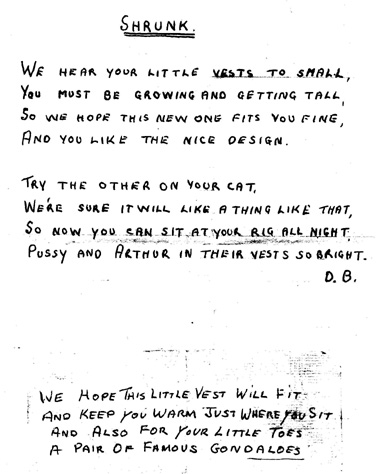 SHRUNK.
WE HEAR YOUR LITTLE VESTS TO SMALL,
YOU MUST BE GROWING AND GETTING TALL,
SO WE HOPE THIS NEW ONE FITS YOU FINE,
AND YOU LIKE THE NICE DESIGN.
TRY THE OTHER ON YOUR CAT,
WE'RE SURE IT WILL LIKE A THING LIKE THAT,
SO NOW YOU CAN SIT AT YOUR RIG ALL NIGHT,
PUSSY AND ARTHUR IN THEIR VESTS SO BRIGHT.
D. B.
WE HOPE THIS LITTLE VEST WILL FIT
AND KEEP YOU WARM JUST WHERE YOU SIT
AND ALSO FOR YOUR LITTLE TOES
A PAIR OF FAMOUS GONDALOES